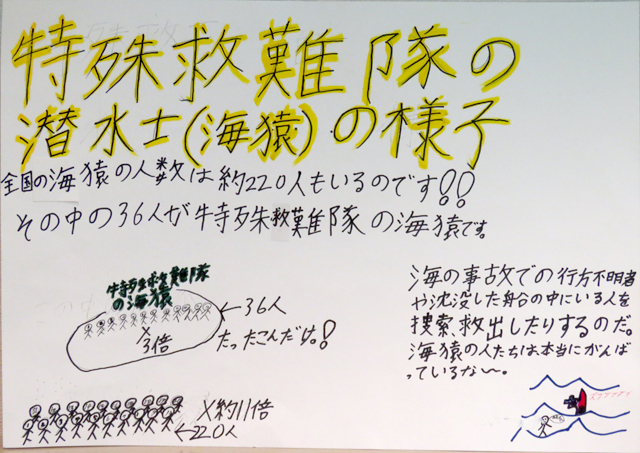 特殊救難隊の
潜水士(海猿)の様子
全国の海猿の人数は約220人もいるのです!!
その中の36人が特殊救難隊の海猿です。
特殊救難隊
の海猿
←36人
×3倍
たったこんだけ。!
×約11倍
←220人
海の事故での行方不明者
や沈没した船の中にいる人を
捜索、救出したりするのだ。
海猿の人たちは本当にがんば
っているな〜。